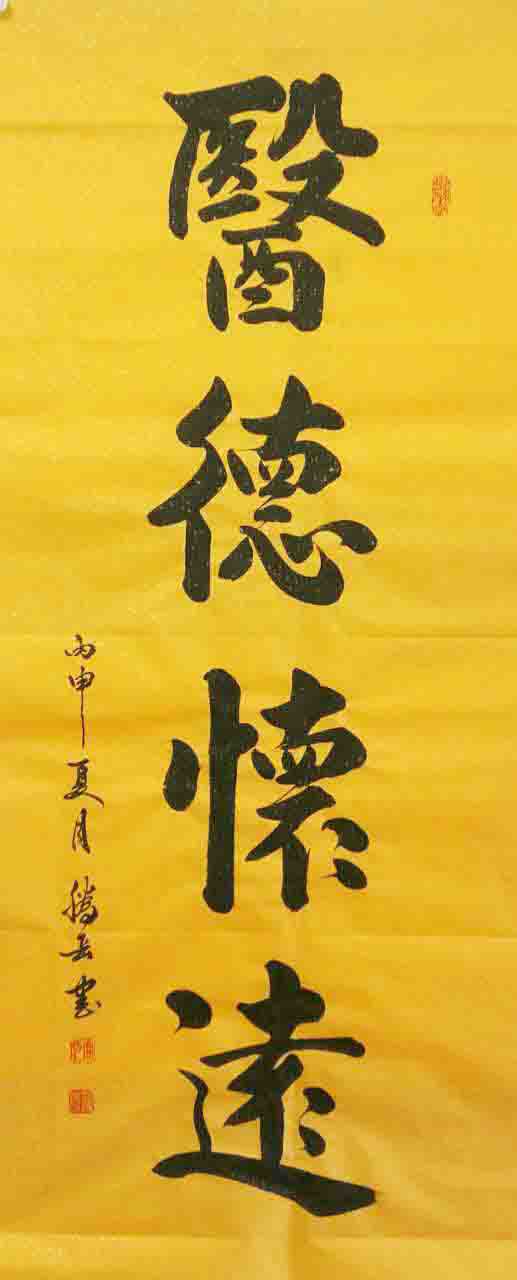 醫德懷遠
丙申夏月腾岳書